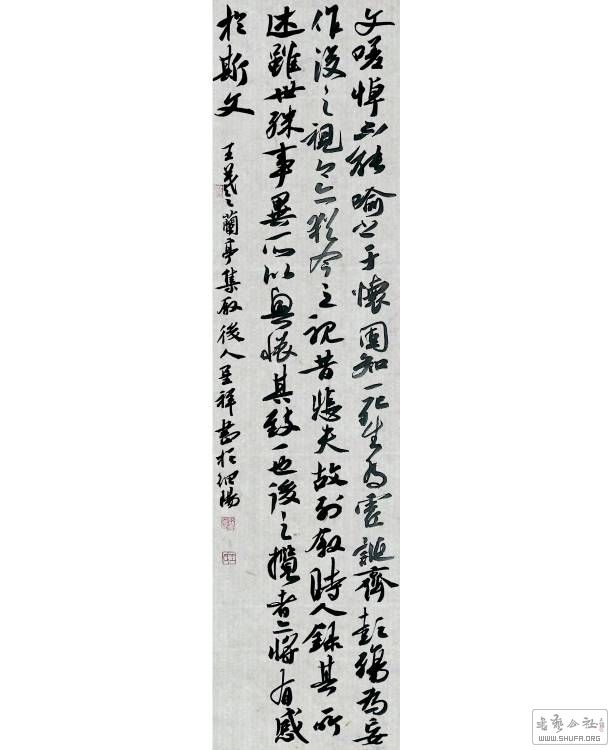 文嗟悼不能喻之于懷固知一死生為虛誕齊彭殤為妄
作後之視今亦猶今之視昔悲夫故列敘時人錄其所
述雖世殊事異所以興懷其致一也後之攬者亦將有感
於斯文
王羲之蘭亭集敘後人呈祥書於泗陽
WWW.SHUFA.ORG